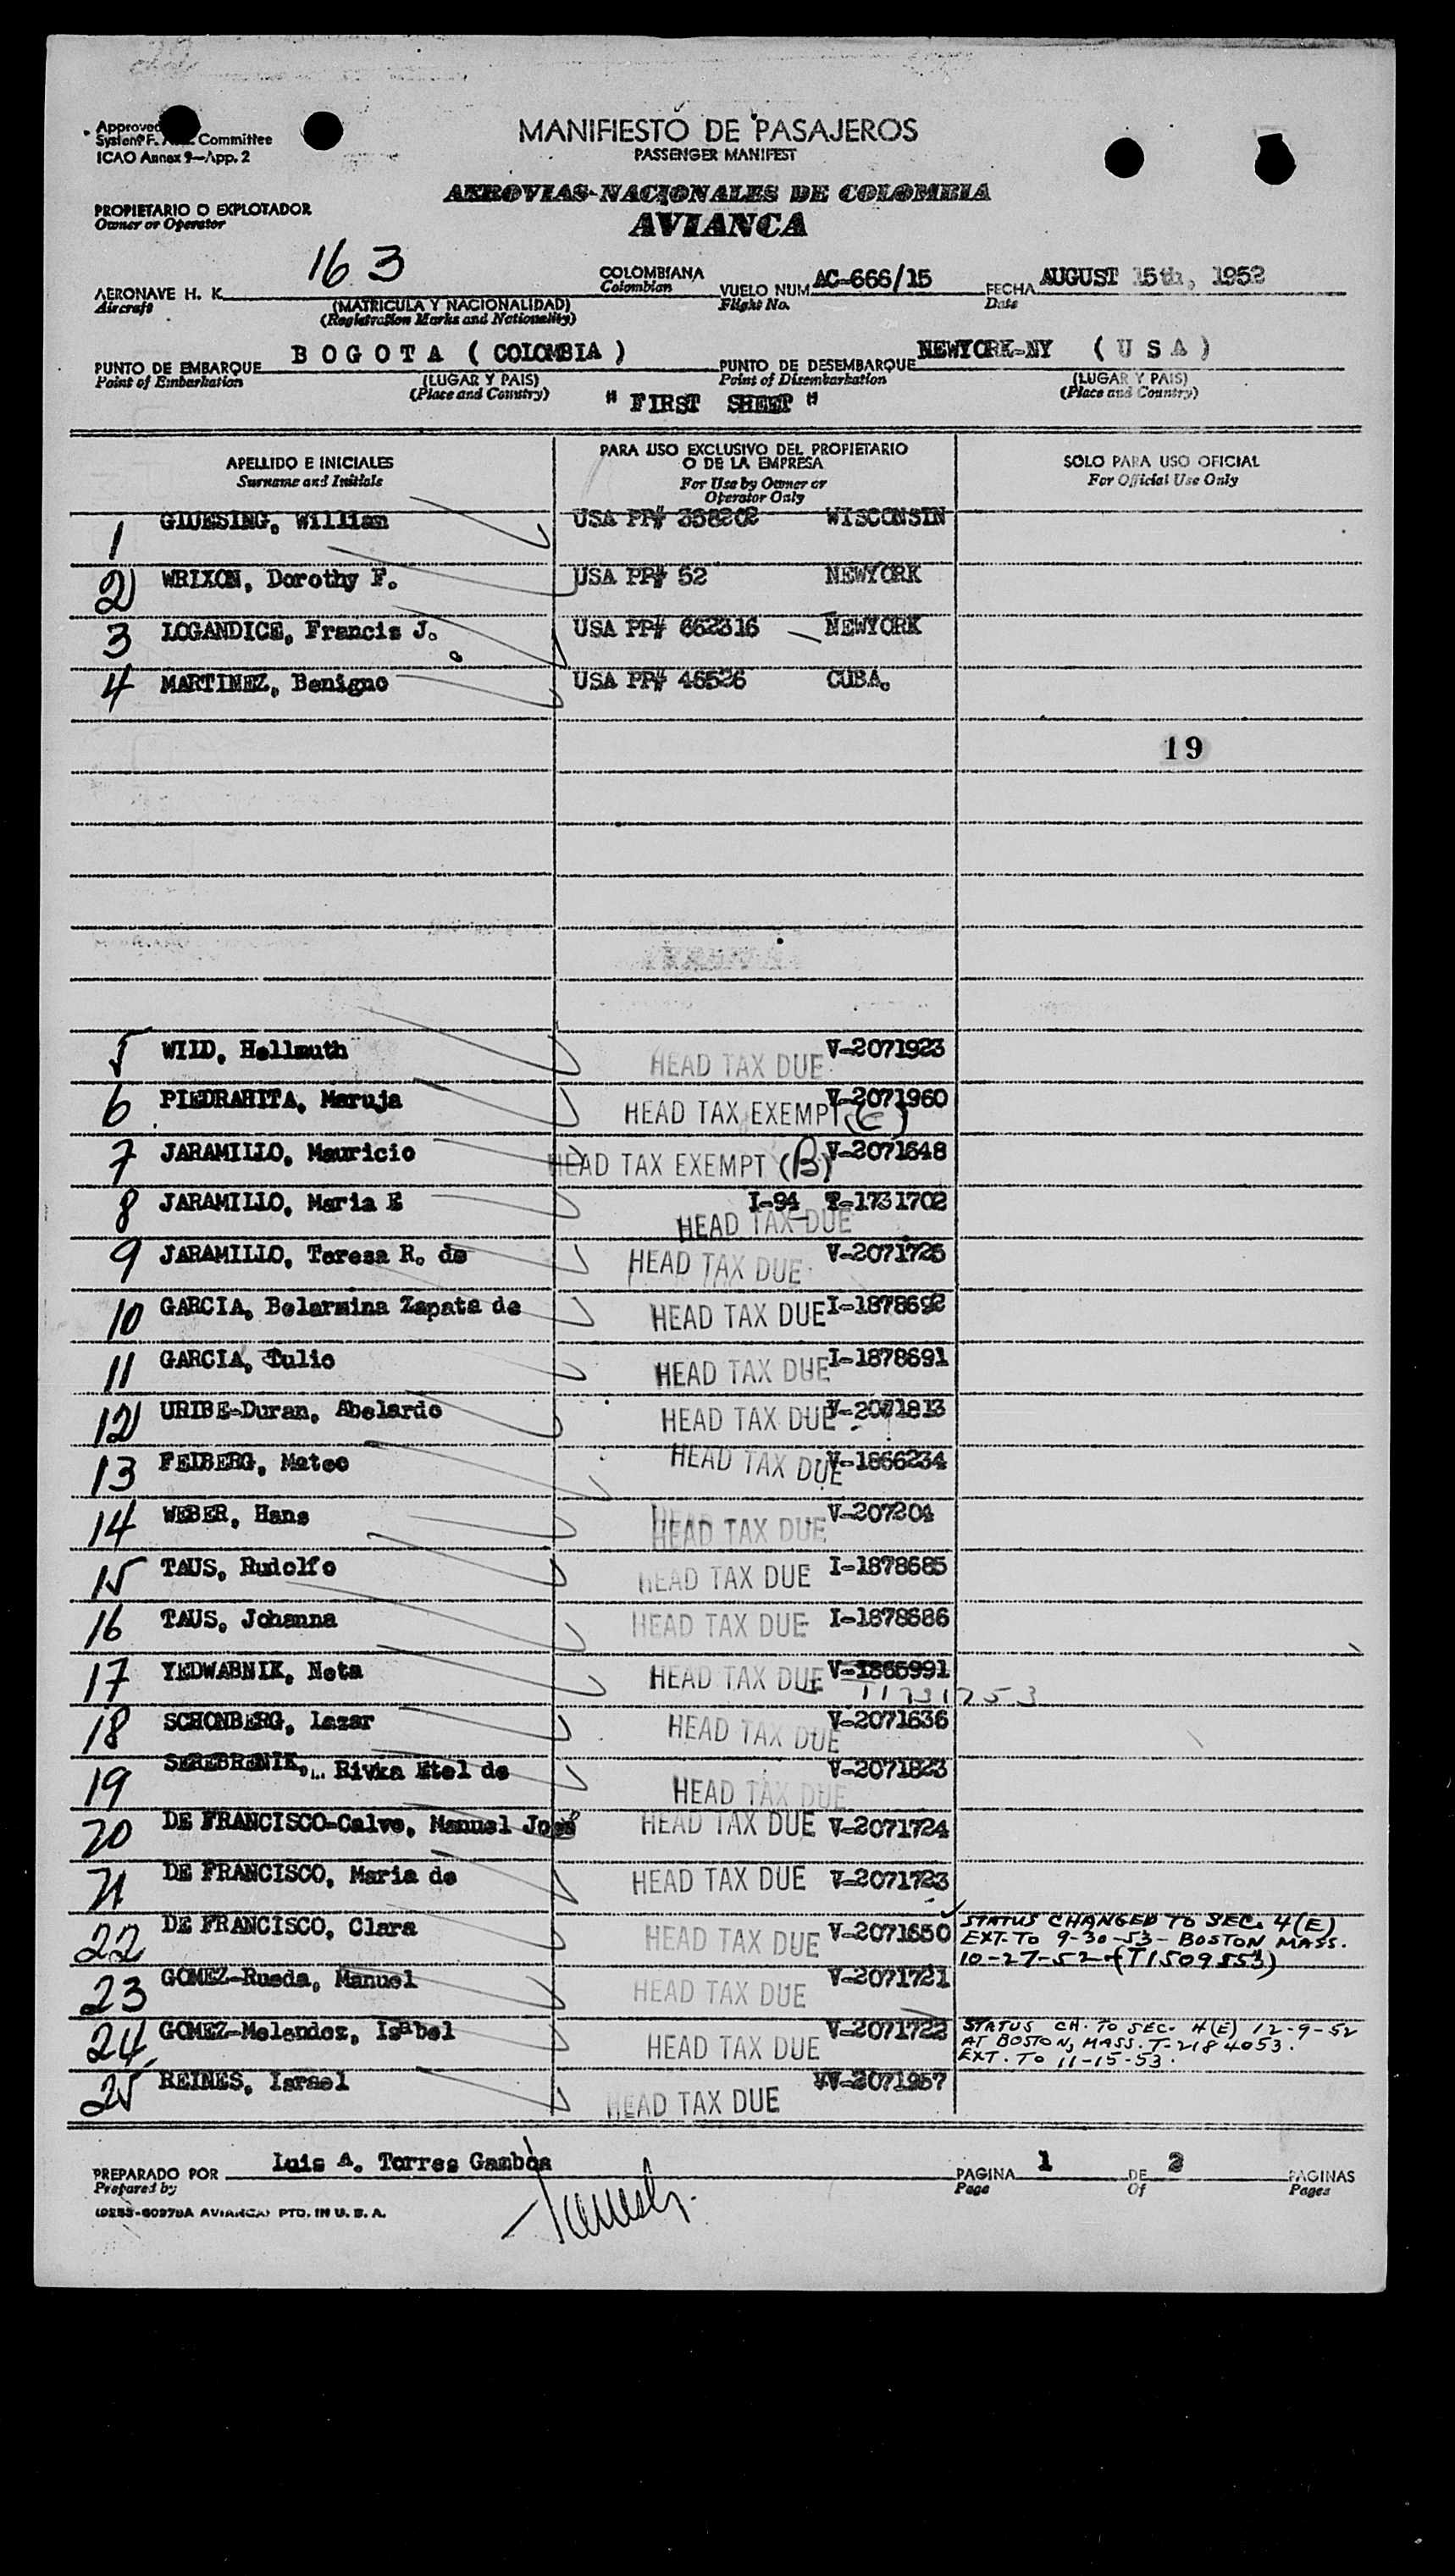 Approved
System F. Committee
ICAO Annex 9—App. 2
MANIFIESTO DE PASAJEROS
PASSENGER MANIFEST
AEROVIAS NACIONALES DE COLOMBIA
AVIANCA
PROPIETARIO O EXPLOTADOR
Owner or Operator
AERONAVE H. K. 163 COLOMBIANA VUELO NUM AC-666/15 FECHA AUGUST 15th, 1952
Aircraft (MATRICULA Y NACIONALIDAD) Colombian Flight No. Date
(Registration Marks and Nationality)
PUNTO DE EMBARQUE B O G O T A ( COLOMBIA ) PUNTO DE DESEMBARQUE NEWYORK-NY ( U S A )
Point of Embarkation (LUGAR Y PAIS) Point of Disembarkation (LUGAR Y PAIS)
(Place and Country) (Place and Country)
" FIRST SHEET "
APELLIDO E INICIALES PARA USO EXCLUSIVO DEL PROPIETARIO O DE LA EMPRESA SOLO PARA USO OFICIAL
Surname and Initials For Use by Owner or Operator Only For Official Use Only
1 GIUESING, Willian USA PP# 358202 WISCONSIN
2 WRIXON, Dorothy F. USA PP# 52 NEWYORK
3 LOGANDICE, Francis J. USA PP# 662316 NEWYORK
4 MARTINEZ, Benigno USA PP# 46526 CUBA.
19
5 WILD, Hellmuth HEAD TAX DUE V-2071923
6 PIEDRAHITA, Maruja HEAD TAX EXEMPT (C) V-2071960
7 JARAMILLO, Mauricio HEAD TAX EXEMPT (B) V-2071648
8 JARAMILLO, Maria E I-94 T-1731702
HEAD TAX DUE
9 JARAMILLO, Teresa R. de HEAD TAX DUE V-2071725
10 GARCIA, Belarmina Zapata de HEAD TAX DUE I-1878692
11 GARCIA, Tulio HEAD TAX DUE I-1878691
12 URIBE-Duran, Abelardo HEAD TAX DUE V-2071813
13 FEIBERG, Mateo HEAD TAX DUE V-1866234
14 WEBER, Hans HEAD TAX DUE V-207204
15 TAUS, Rudolfo HEAD TAX DUE I-1878685
16 TAUS, Johanna HEAD TAX DUE I-1878686
17 YEDWABNIK, Nota HEAD TAX DUE V-1866991
18 SCHONBERG, Lazar HEAD TAX DUE V-2071636
19 SEREBRENIK, Rivka Etel de HEAD TAX DUE V-2071823
20 DE FRANCISCO-Calvo, Manuel José HEAD TAX DUE V-2071724
21 DE FRANCISCO, Maria de HEAD TAX DUE V-2071723
22 DE FRANCISCO, Clara HEAD TAX DUE V-2071650 STATUS CHANGED TO SEC. 4(E)
EXT. TO 9-30-53- BOSTON MASS.
10-27-52-(T1509553)
23 GOMEZ-Rueda, Manuel HEAD TAX DUE V-2071721
24 GOMEZ-Melendez, Isabel HEAD TAX DUE V-2071722 STATUS CH. TO SEC. 4(E) 12-9-52
AT BOSTON, MASS. T-2184053.
EXT. TO 11-15-53.
25 REINES, Israel HEAD TAX DUE VV-2071957
PREPARADO POR Luis A. Torres Gamboa PAGINA 1 DE 2 PAGINAS
Prepared by Page Of Pages
AVIANCA) PTD. IN U. S. A.